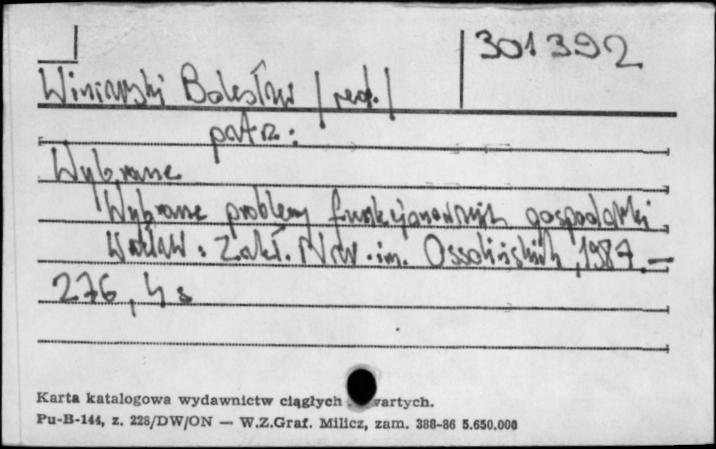 301392
Winiarski Bolesław /red./
patrz:
Wybrane
Wybrane problemy funkcjonowania gospodarki
Wrocław: Zakł. Nar. im. Ossolińskich, 1987. —
276, 4 s
Karta katalogowa wydawnictw ciągłych wartych.
Pu-B-144, z. 228/DW/ON — W.Z.Graf. Milicz, zam. 388-86 5.650.000